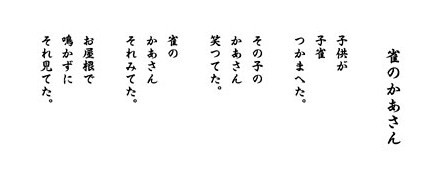 雀のかあさん
子供が
子雀
つかまへた。
その子の
かあさん
笑つてた。
雀の
かあさん
それみてた。
お屋根で
鳴かずに
それ見てた。